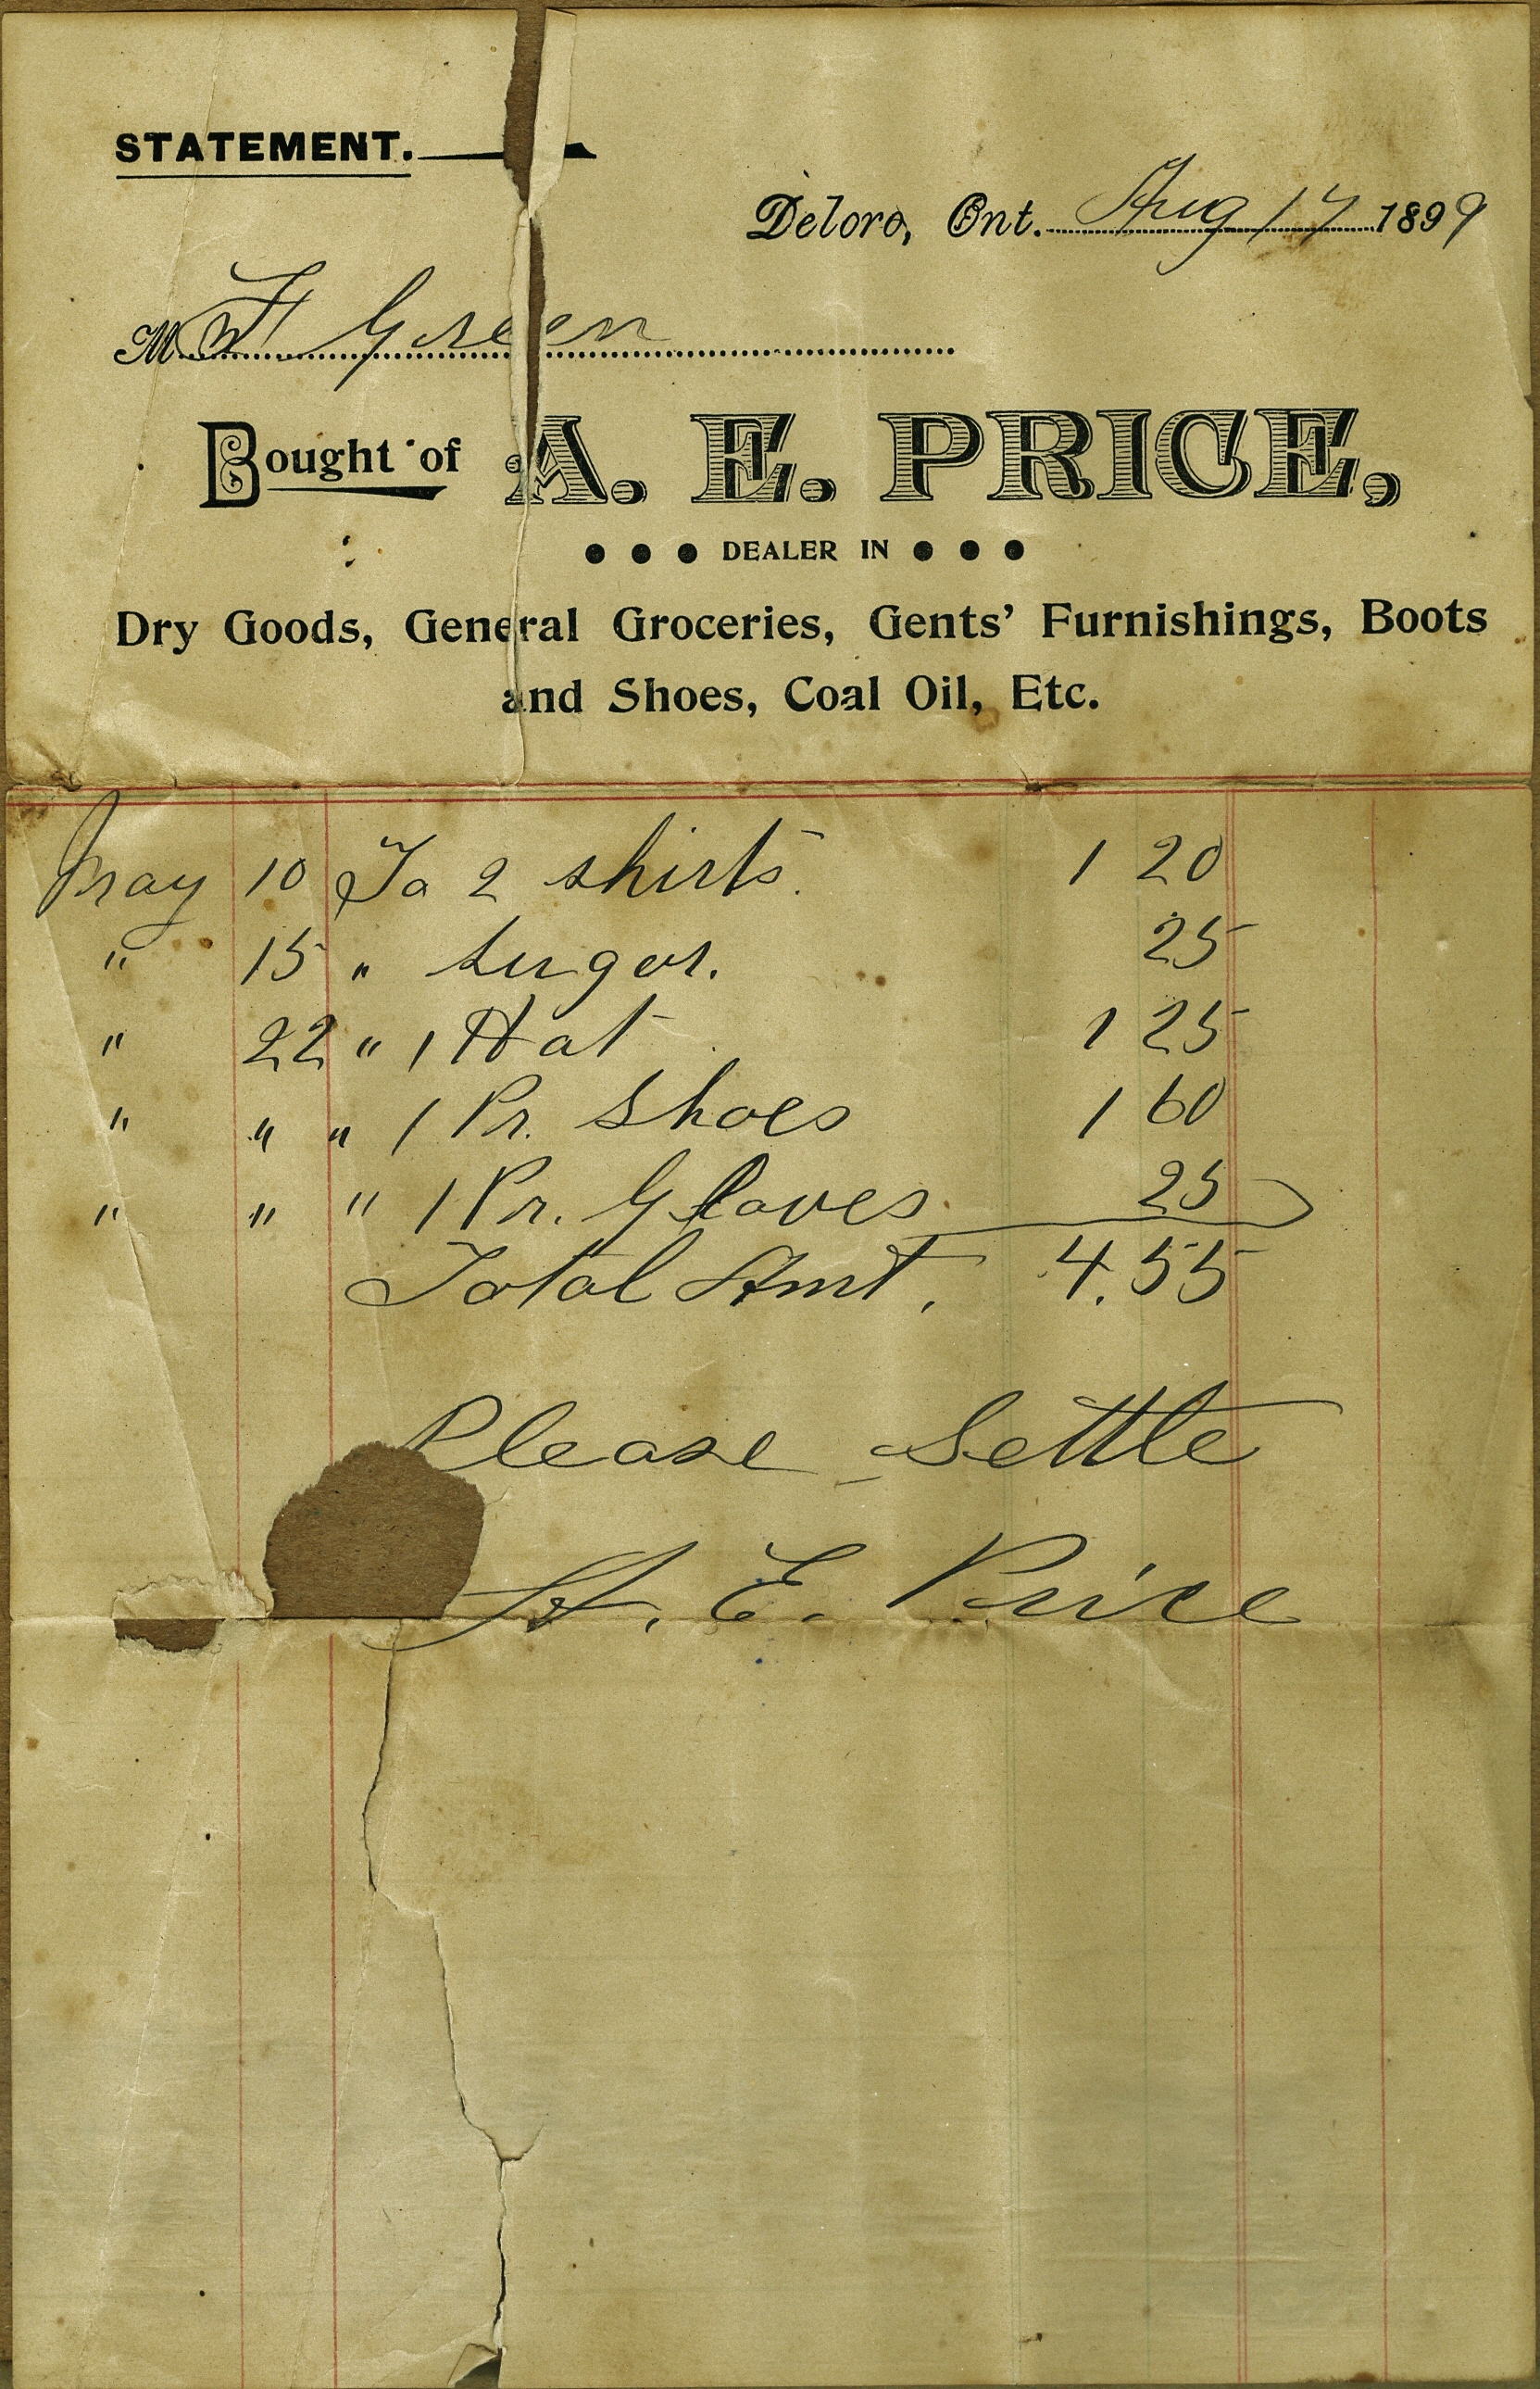 STATEMENT.
Deloro, Ont. Aug 17 1899
Mr F Green
Bought of A. E. PRICE,
DEALER IN
Dry Goods, General Groceries, Gents' Furnishings, Boots
and Shoes, Coal Oil, Etc.
May 10 To 2 shirts. 1 20
" 15 " sugar. 25
" 22 " 1 Hat 1 25
" " " 1 Pr. Shoes 1 60
" " " 1 Pr. Gloves 25
Total Amt. 4.55
Please Settle
A. E. Price